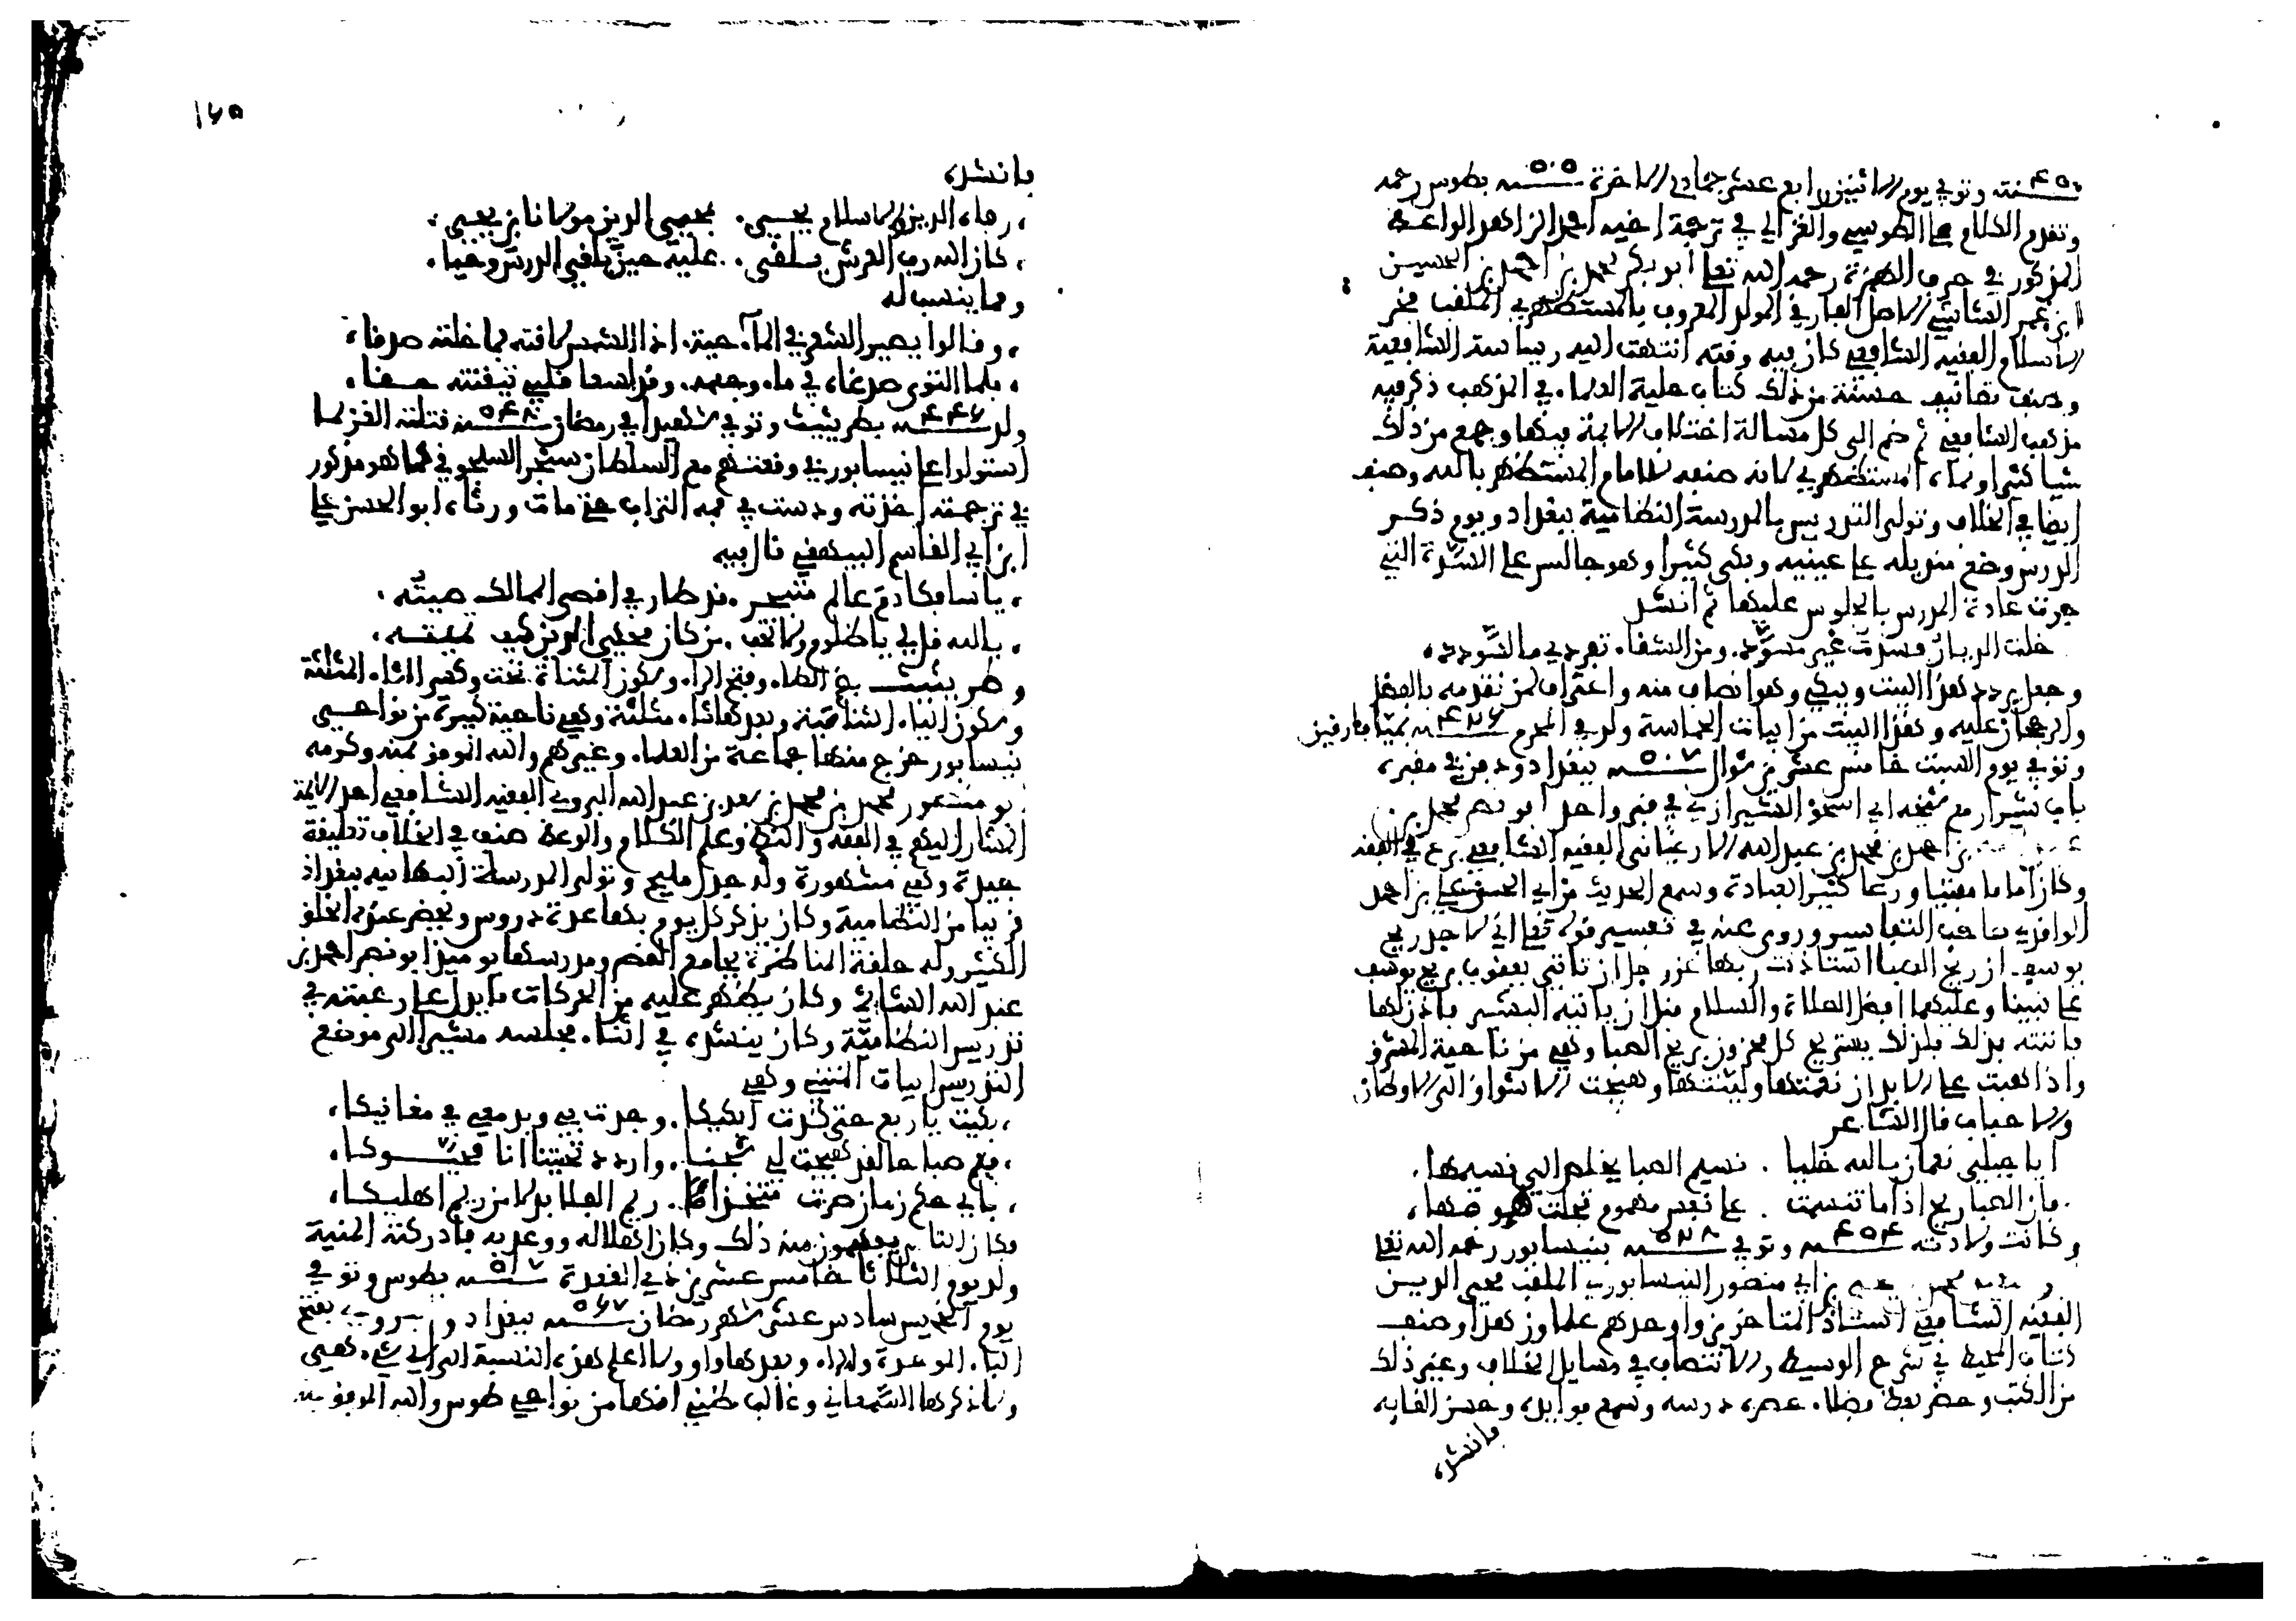 ٤٥٠ سنة وتوفي يوم الاثنين رابع عشر جمادى الاخرة سنة ٥٠٥ بطوس رحمه
وتقدم الكلام على الطوسي والغزالي في ترجمة اخيه احمد الزاهد الواعظ
المذكور في حرف الهمزة رحمه الله تعا أبو بكر محمد بن احمد بن الحسين
ابن عمر الشاشي الاصل الفارقي المولد المعروف بالمستظهري الملقب فخر
الاسلام الفقيه الشافعي كان فقيه وقته انتهت اليه رياسة الشافعية
وصنف تصانيف حسنة من ذلك كتاب حلية العلماء في المذهب ذكر فيه
مذهب الشافعي ثم ضم الى كل مسالة اختلاف الايمة فيها وجمع من ذلك
شيا كثيرا وسماه المستظهري لانه صنفه للامام المستظهر بالله وصنف
ايضا في الخلاف وتولى التدريس بالمدرسة النظامية ببغداد ويوم ذكر
الدرس وضع منديله على عينيه وبكى كثيرا وهو جالس على السدة التي
جرت عادة المدرس بالجلوس عليها ثم انشد
خلت الديار فسدت غير مسود . ومن الشقاء تفردي بالسودد،
وجعل يردد هذا البيت ويبكي وهو انصاف منه واعتراف لمن تقدمه بالفضل
والرجحان عليه وهذا البيت من ابيات الحماسة ولد في المحرم سنة ٤٢٩ بميافارقين
وتوفي يوم السبت خامس عشرين شوال سنة ٥٠٧ ببغداد ودفن في مقبرة
باب شيراز مع شيخه ابي اسحق الشيرازي في قبر واحد أبو نصر محمد بن
بن احمد بن محمد بن عبد الله الارغياني الفقيه الشافعي برع في الفقه
وكان اماما مفتيا ورعا كثير العبادة وسمع الحديث من ابي الحسن علي بن احمد
الواقدي صاحب التفاسير وروى عنه في تفسير قوله تعا اني لاجد ريح
يوسف ان ريح الصبا استاذنت ربها عز وجل ان تاتي يعقوب بريح يوسف
على نبينا وعليهما افضل الصلاة والسلام قبل ان ياتيه البشير فاذن لها
فاتته بذلك فلذلك يستريح كل محزون بريح الصبا وهي من ناحية المشرق
واذا هبت على الابدان نعمتها ولينتها وهيجت الاشواق الى الاوطان
والاحباب قال الشاعر
ايا جبلي نعمان بالله خليا . نسيم الصبا يخلص الي نسيمها .
. فان الصبا ريح اذا ما تنسمت . على نفس مهموم تجلت همومها،
وكانت ولادته سنة ٤٥٤ وتوفي سنة ٥٢٨ بنيسابور رحمه الله تعا
محمد بن يحيى بن ابي منصور النيسابوري الملقب محيي الدين
الفقيه الشافعي استاذ المتاخرين واوحدهم علما وزهدا وصنف
كتاب المحيط في شرح الوسيط والانتصاف في مسايل الخلاف وغير ذلك
من الكتب وحضر بعض فضلاء عصره درسه وسمع فوايده وحسن القايه
فانشده
١٢٥
فانشده
، رفات الدين والاسلام يحيى . بمحيي الدين مولانا بن يحيى .
، كان الله رب العرش يلقي . عليه حين يلقي الدرس وحيا .
ومما ينسب له
، وقالوا يصير الشعر في الماء حية . اذا الشمس لاقته فما خلته صدقا،
، فلما التوى صدغاه في ماء وجهه . وقد لسعا قلبي تيقنته حقا،
ولد سنة ٤٤٦ بطريثيث وتوفي شهيدا في رمضان سنة ٥٤٨ قتلته الغز لما
استولوا على نيسابور في وقعتهم مع السلطان سنجر السلجوقي كما هو مذكور
في ترجمته اخذته ودست في فيه التراب حتى مات ورثاه ابو الحسن علي
ابن ابي القاسم البيهقي قال فيه
، يا سافكا دم عالم متبحر . قد طار في اقصى الممالك صيته .
، بالله قل لي يا ظلوم ولا تخف . من كان محيي الدين كيف تميته،
وطريثيث بضم الطاء وفتح الراء وسكون المثناة تحت وكسر الثاء المثلثة
وسكون الياء الثانية وبعدها ثاء مثلثة وهي ناحية كبيرة من نواحي
نيسابور خرج منها جماعة من العلماء وغيرهم والله الموفق بمنه وكرمه
بو منصور محمد بن محمد بن سعد بن عبد الله البروي الفقيه الشافعي احد الايمة
المشار اليهم في الفقه والنظر وعلم الكلام والوعظ صنف في الخلاف تعليقة
جيدة وهي مشهورة وله جدل مليح وتولى المدرسة البهائية ببغداد
قريبا من النظامية وكان يذكر كل يوم بها عدة دروس ويحضر عنده الخلق
الكثير وله حلقة المناظرة بجامع القصر ومدرسها يوميذ ابو نصر احمد بن
عبد الله الشاشي وكان يظهر عليه من الحركات ما يدل على رغبته في
تدريس النظامية وكان ينشد في اثناء مجلسه مشيرا الى موضع
التدريس ابيات المتنبي وهي
، بكيت يا ربع حتى كدت ابكيكا . وجدت بي وبدمعي في مغانيكا،
، فعم صباحا لقد هيجت لي شجنا . واردد تحيتنا انا محيوكا،
، باي حكم زمان صرت متخذا . ريم الفلا بدلا من ريم اهليكا،
فكان الناس يفهمون منه ذلك وكان اهلا له ووعد به فادركته المنية
ولد يوم الثلاثا خامس عشرين ذي القعدة سنة ٥١٧ بطوس وتوفي
يوم الخميس سادس عشر شهر رمضان سنة ٥٦٧ ببغداد والبروي بفتح
الباء الموحدة والراء وبعدها واو ولا اعلم هذه النسبة الى اي شيء هي
ولا ذكرها السمعاني وغالب ظني انها من نواحي طوس والله الموفق بمنه